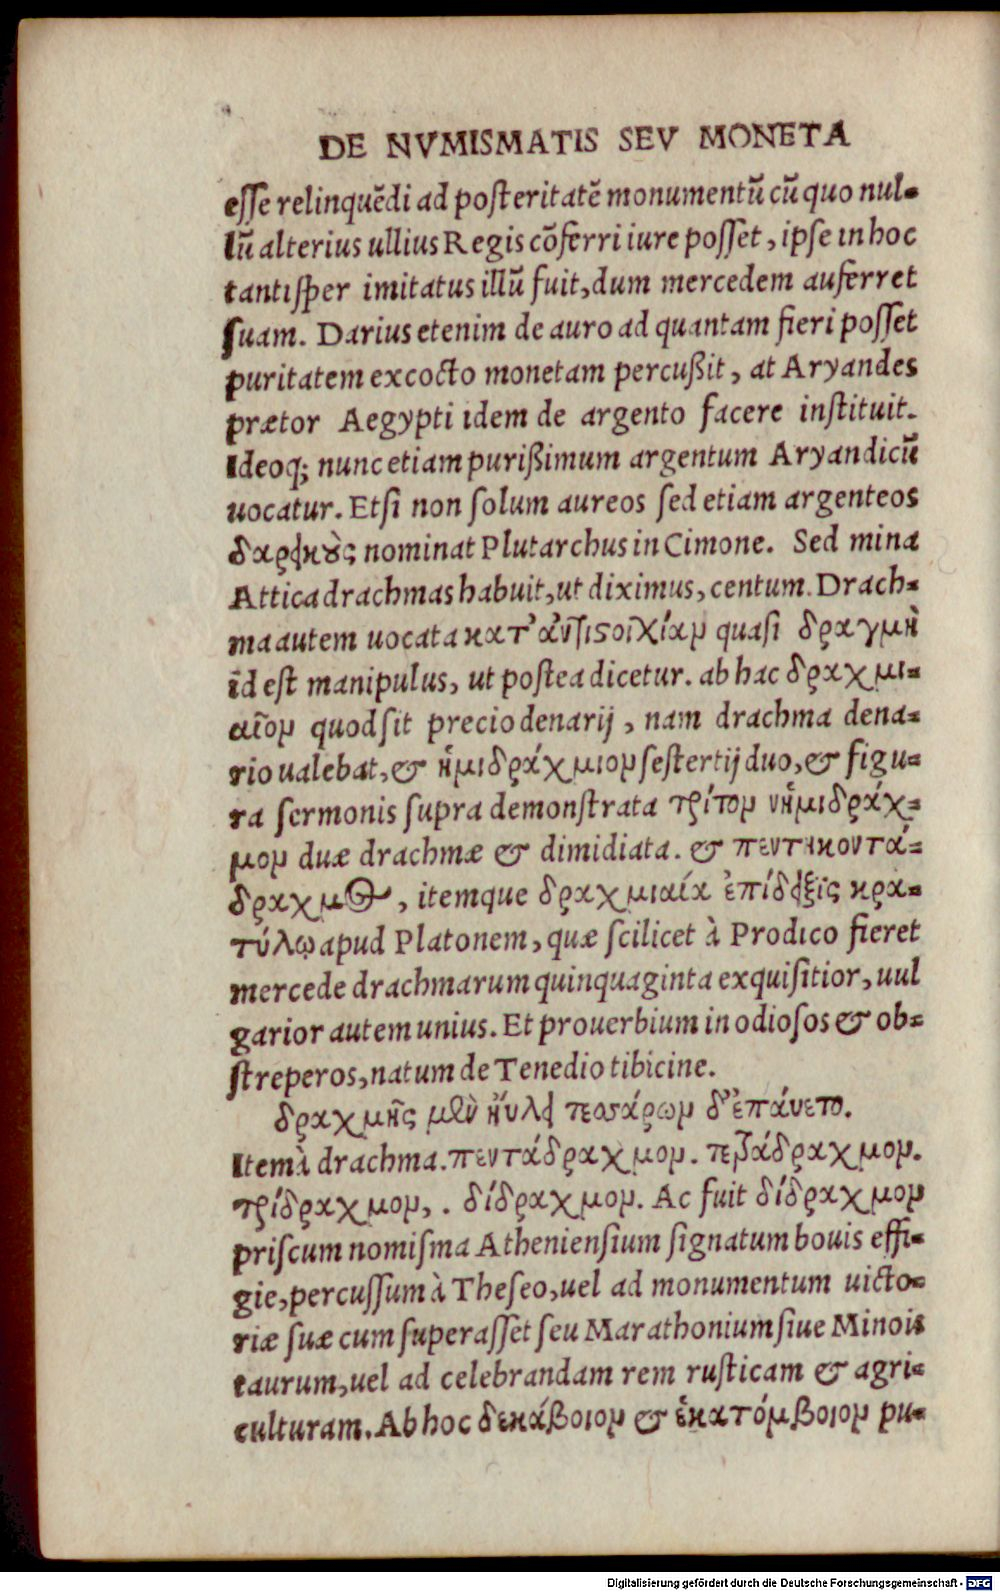 DE NVMISMATIS SEV MONETA
eſſe relinquẽdi ad poſteritatẽ monumentũ cũ quo nul-
lũ alterius ullius Regis cõferri iure poſſet, ipſe in hoc
tantiſper imitatus illũ fuit, dum mercedem auferret
ſuam. Darius etenim de auro ad quantam fieri poſſet
puritatem excocto monetam percußit, at Aryandes
prætor Aegypti idem de argento facere inſtituit.
Ideoq; nunc etiam purißimum argentum Aryandicũ
uocatur. Etſi non ſolum aureos ſed etiam argenteos
δαρεικοὺς nominat Plutarchus in Cimone. Sed mina
Attica drachmas habuit, ut diximus, centum. Drach-
ma autem uocata κατ᾽ ἀντιστοιχίαν quaſi δραγμὴ
id eſt manipulus, ut poſtea dicetur. ab hac δραχμι-
αῖον quod ſit precio denarij, nam drachma dena-
rio ualebat, & ἡμιδράχμιον ſeſtertij duo, & figu-
ra ſermonis ſupra demonſtrata τρίτον νἡμιδράχ-
μον duæ drachmæ & dimidiata. & πεντηκοντά-
δραχμος, itemque δραχμιαία ἐπίδειξις κρα-
τύλῳ apud Platonem, quæ ſcilicet à Prodico fieret
mercede drachmarum quinquaginta exquiſitior, uul
garior autem unius. Et prouerbium in odioſos & ob-
ſtreperos, natum de Tenedio tibicine.
δραχμῆς μὲν ηὔλει τεσσάρων δ᾽ ἐπάυετο.
Item à drachma. πεντάδραχμον. τετράδραχμον.
τρίδραχμον, . δίδραχμον. Ac fuit δίδραχμον
priſcum nomiſma Athenienſium ſignatum bouis effi-
gie, percuſſum à Theſeo, uel ad monumentum uicto-
riæ ſuæ cum ſuperaſſet ſeu Marathonium ſiue Minois
taurum, uel ad celebrandam rem ruſticam & agri-
culturam. Ab hoc δεκάβοιον & ἑκατόμβοιον pu-
Digitalisierung gefördert durch die Deutsche Forschungsgemeinschaft - DFG